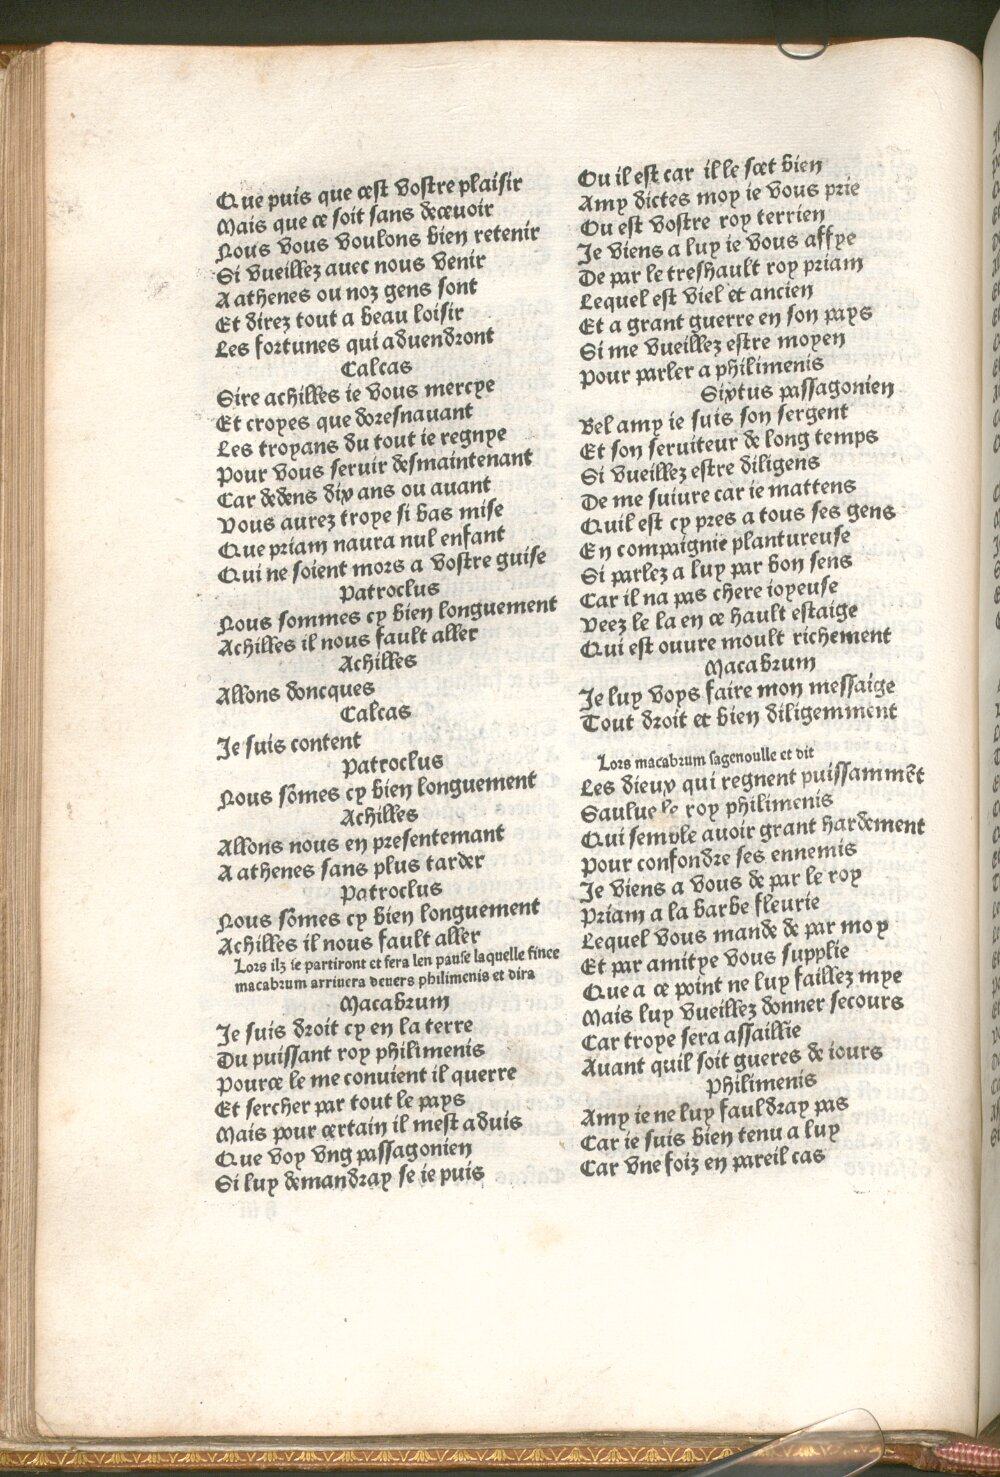 Que puis que cest vostre plaisir
Mais que ce soit sans decevoir
Nous vous voulons bien retenir
Si vueillez avec nous venir
A athenes ou noz gens sont
Et direz tout a beau loisir
Les fortunes qui advendront
Calcas
Sire achilles ie vous mercye
Et croyes que doresnavant
Les troyans du tout ie regnye
Pour vous servir desmaintenant
Car dedens dix ans ou avant
Vous aurez troye si bas mise
Que priam naura nul enfant
Qui ne soient mors a vostre guise
Patroclus
Nous sommes cy bien longuement
Achilles il nous fault aller
Achilles
Allons doncques
Calcas
Je suis content
Patroclus
Nous sōmes cy bien longuement
Achilles
Allons nous en presentemant
A athenes sans plus tarder
Patroclus
Nous sōmes cy bien longuement
Achilles il nous fault aller
Lors ilz se partiront et sera len pause laquelle fince
macabrum arrivera devers philimenis et dira
Macabrum
Je suis droit cy en la terre
Du puissant roy philimenis
Pource le me convient il querre
Et sercher par tout le pays
Mais pour certain il mest advis
Que voy vng passagonien
Si luy demandray se ie puis
Ou il est car il le scet bien
Amy dictes moy ie vous prie
Ou est vostre roy terrien
Je viens a luy ie vous affye
De par le treshault roy priam
Lequel est viel et ancien
Et a grant guerre en son pays
Si me vueillez estre moyen
Pour parler a philimenis
Sixtus passagonien
Bel amy ie suis son sergent
Et son serviteur de long temps
Si vueillez estre diligens
De me suivre car ie mattens
Quil est cy pres a tous ses gens
En compaignie plantureuse
Si parlez a luy par bon sens
Car il na pas chere ioyeuse
Veez le la en ce hault estaige
Qui est ouvre moult richement
Macabrum
Je luy voys faire mon messaige
Tout droit et bien diligemment
Lors macabrum sagenoulle et dit
Les dieux qui regnent puissammēt
Saulue le roy philimenis
Qui semble avoir grant hardement
Pour confondre ses ennemis
Je viens a vous de par le roy
Priam a la barbe fleurie
Lequel vous mande de par moy
Et par amitye vous supplie
Que a ce point ne luy faillez mye
Mais luy vueillez donner secours
Car troye sera assaillie
Avant quil soit gueres de iours
Philimenis
Amy ie ne luy fauldray pas
Car ie suis bien tenu a luy
Car vne foiz en pareil cas